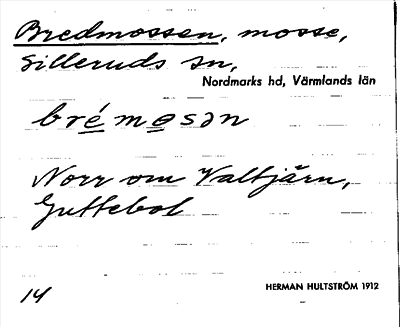 Bredmossen, mosse,
Silleruds sn,
Nordmarks hd, Värmlands län
brémosən
Norr om Valtjärn,
Guttebol
14 HERMAN HULTSTRÖM 1912